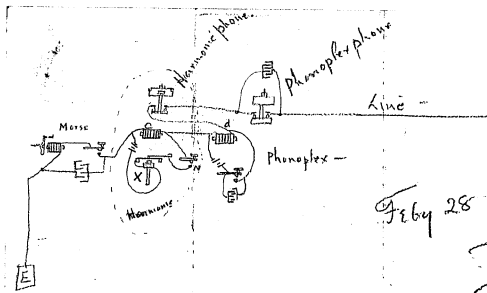 Harmonic phone.
Phonoplex phone
Line -
Morse
c
d
Phonoplex -
X
N
Harmonic
Feby 28
E